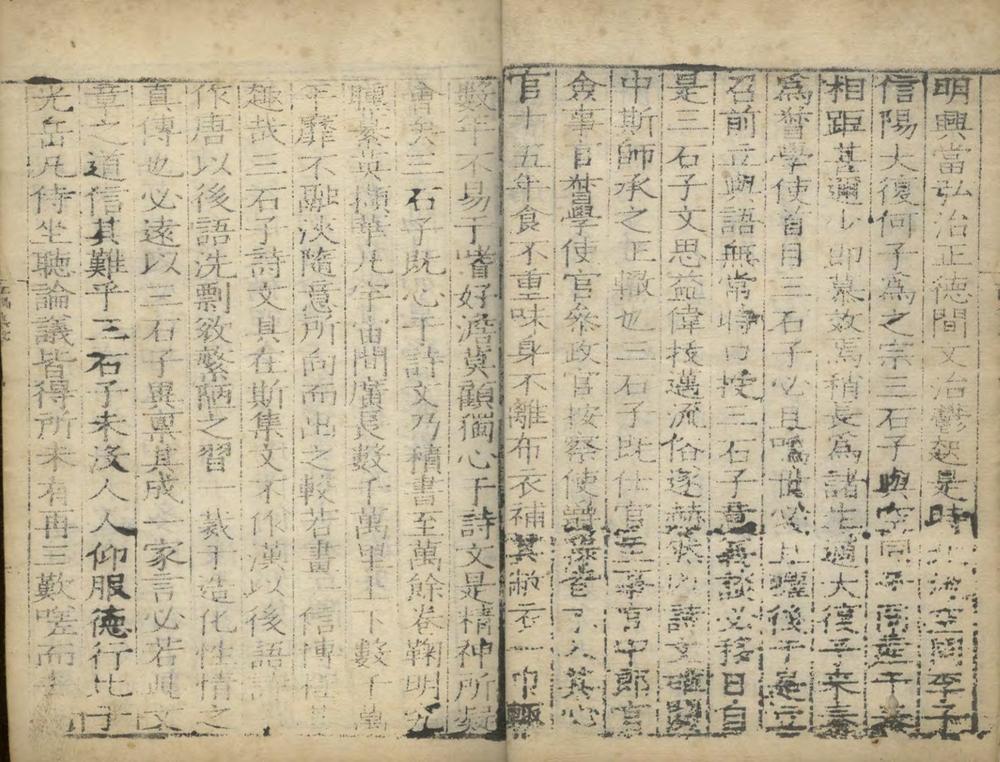 明興當弘治正德間文治鬱起是時北地空同李子
信陽大復何子為之宗三石子與空同子同
相距甚邇少即慕效焉稍長為諸生適大復子來秦
為督學使首目三石子必且鳴世
召前立與語無常時口授三石子談必移日自
是三石子文思益偉技邁流俗遂赫然以詩文
中斯師承之正轍也三石子既仕官郎官
僉事官督學使官參政官按察使其心
官十五年食不重味身不離布衣補其敝衣一巾輒
數年不易于嗜好澹莫顧獨心于詩文是精神所凝
會矣三石子既心于詩文乃積書至萬餘卷鞠明究
曛綦英擷華凡宇宙間廣長數千萬里上數千萬
年靡不融浹隨意所向而出之較若畫一信傳
趣哉三石子詩文具在斯集文不作漢以後語詩
作唐以後語洗剽效縈陋之習一裁于造化性情之
真傳也必遠以三石子異稟其成一家言必若此文
章之道信其難乎三石子未沒人人仰服德行比于
光岳凡侍坐聽論議皆得所未有再三歎嗟而